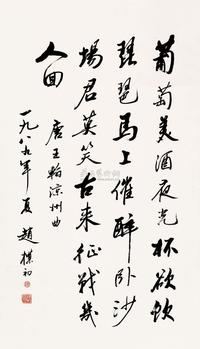 葡萄美酒夜光杯欲饮
琵琶马上催醉卧沙
场君莫笑古来征战几
人回
唐王翰凉州曲
一九八九年夏赵朴初